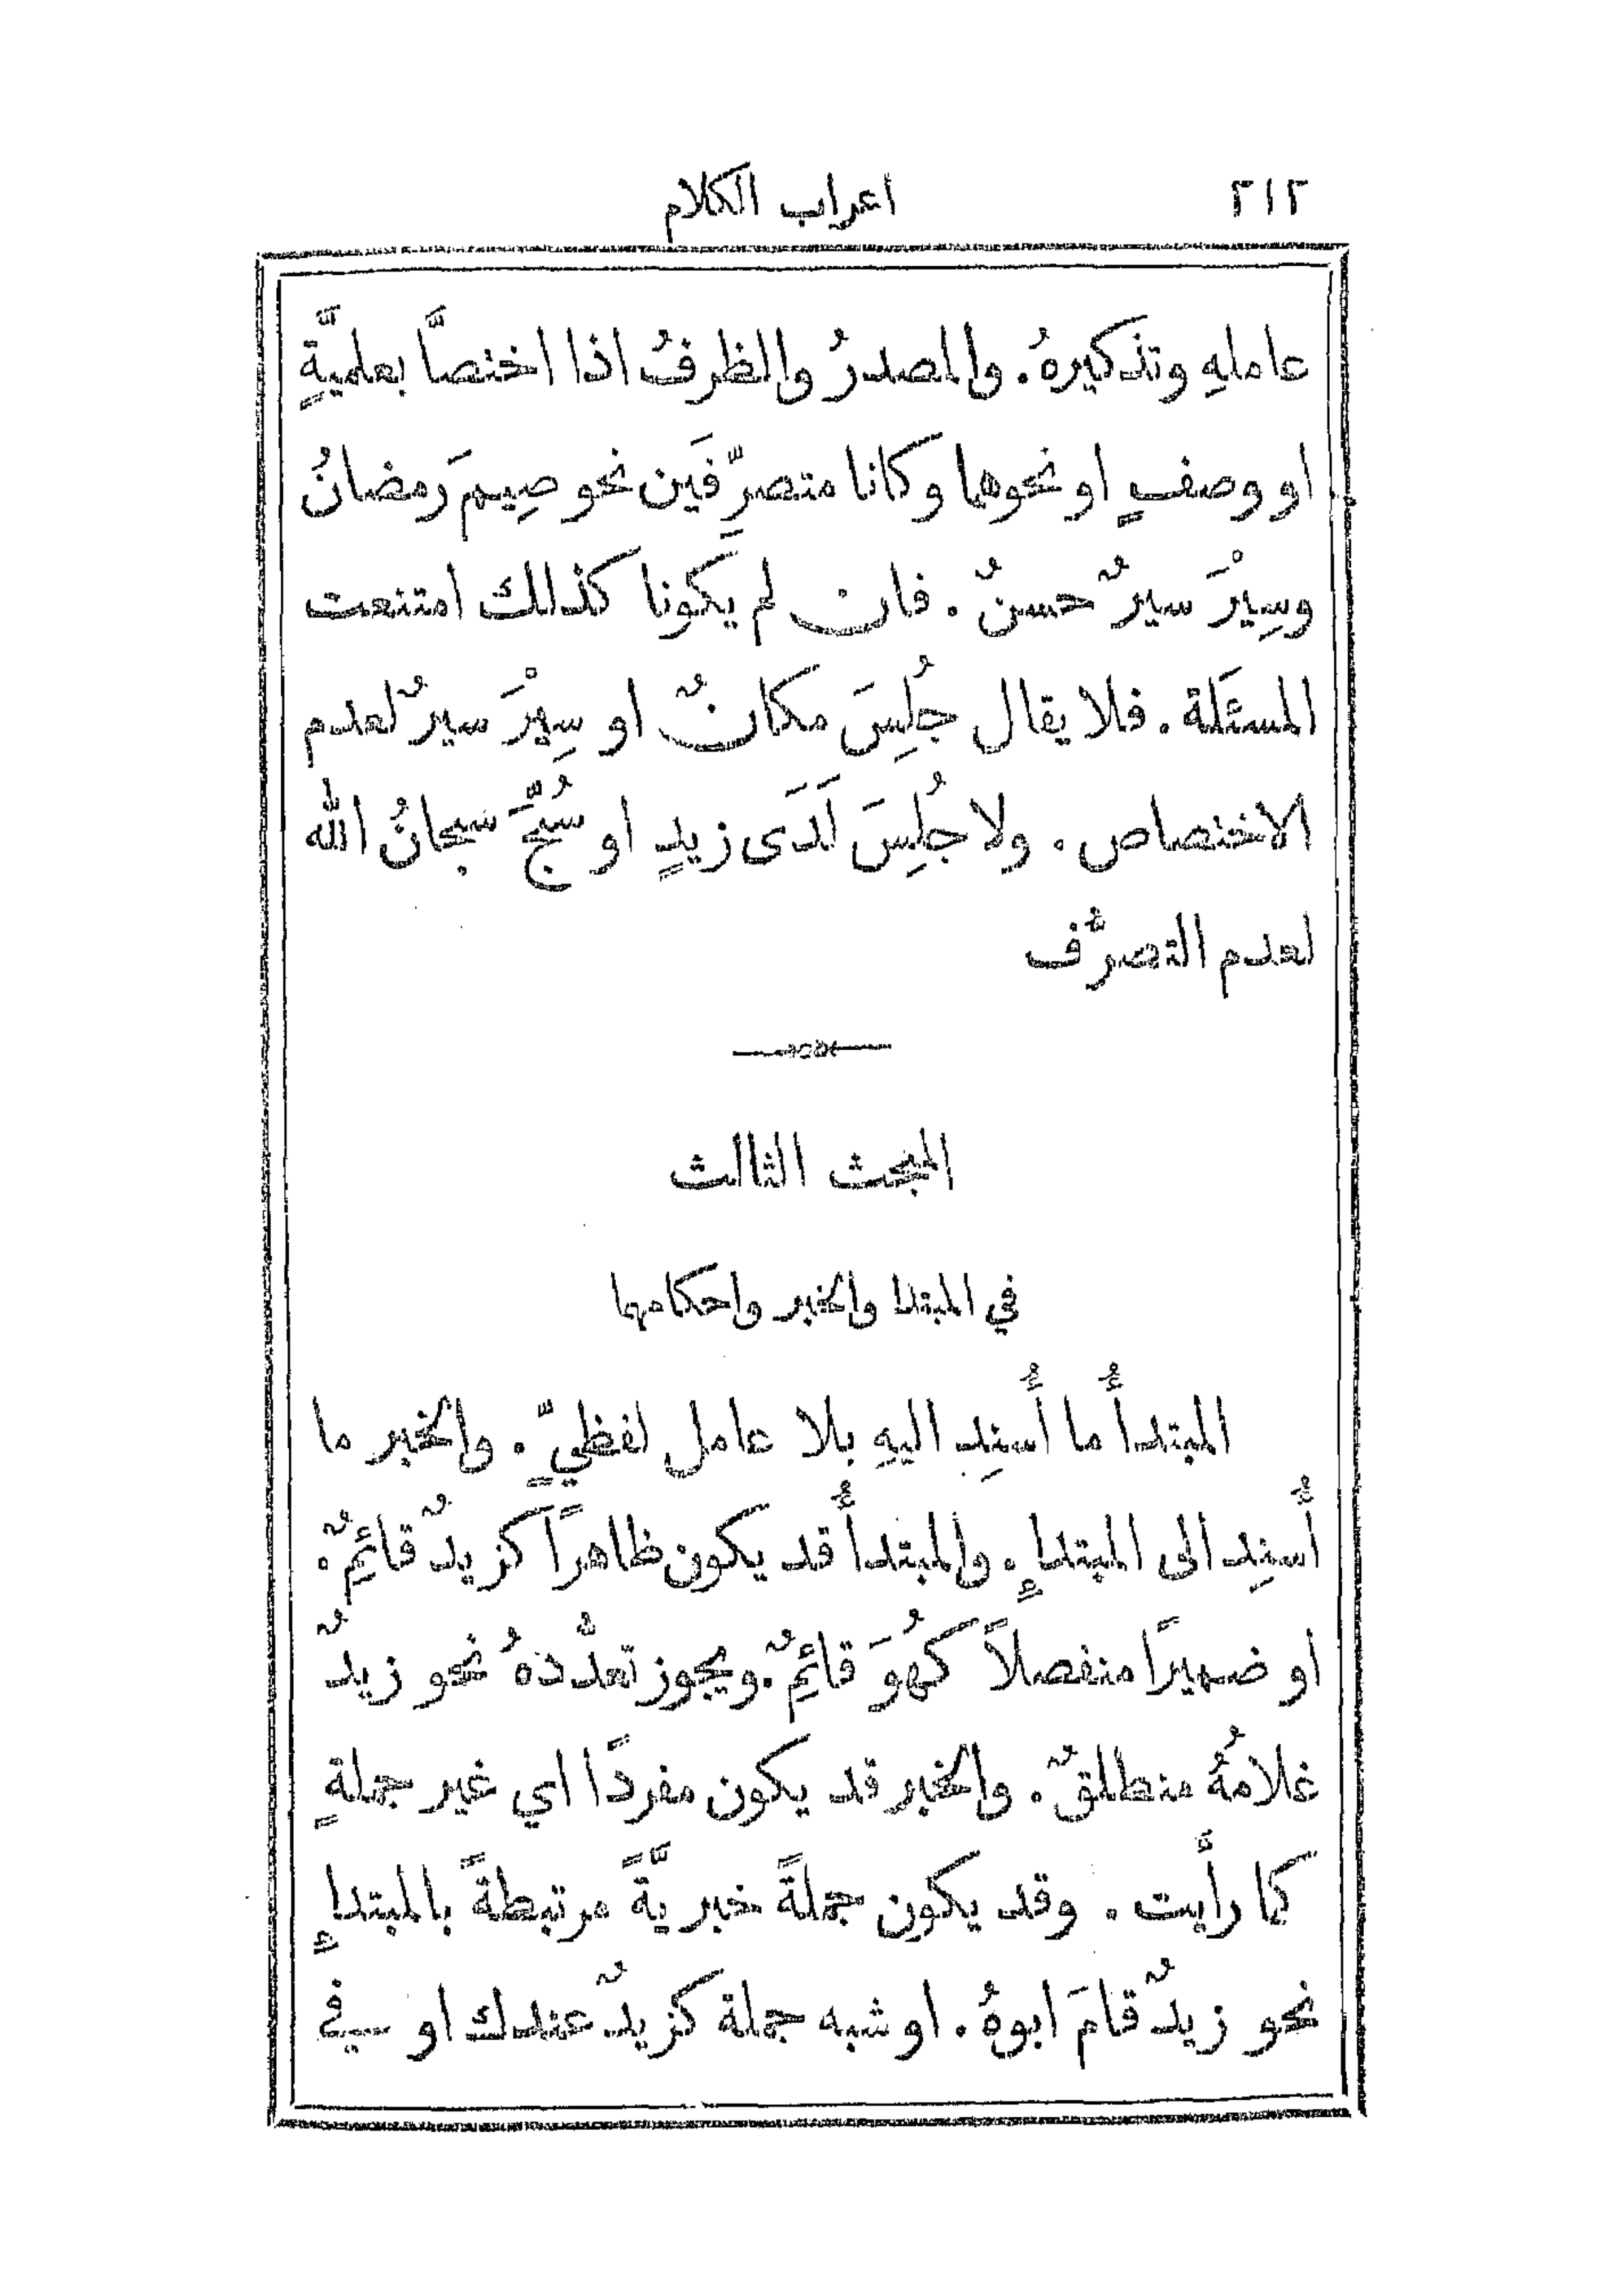 ٢١٢ اعراب الكلام
عاملهِ وتذكيرهُ. والمصدرُ والظرفُ اذا اختصَّا بعلميَّةٍ
او وصفٍ او نحوهما وكانا متصرِّفَين نحو صِيمَ رَمضانُ
وسِيْرَ سيرٌ حسنٌ. فان لم يكونا كذلك امتنعت
المسئَلة. فلا يقال جُلِسَ مكانٌ او سِيْرَ سيرٌ لعدم
الاختصاص. ولا جُلِسَ لَدَى زيدٍ او سُبِّحَ سبحانُ الله
لعدم التصرُّف
المبحث الثالث
في المبتدا والخبر واحكامهما
المبتدأُ ما أُسنِد اليهِ بلا عامل لفظيٍّ. والخبر ما
أُسنِد الى المبتدإِ. والمبتدأُ قد يكون ظاهرًا كزيدٌ قائِمٌ.
او ضميرًا منفصلاً كهُوَ قائِمٌ. ويجوز تعدُّدهُ نحو زيدٌ
غلامهُ منطلقٌ. والخبر قد يكون مفردًا اي غير جملةٍ
كما رأَيت. وقد يكون جملةً خبريَّةً مرتبطةً بالمبتدإِ
نحو زيدٌ قامَ ابوهُ. او شبه جملة كزيدٌ عندك او في